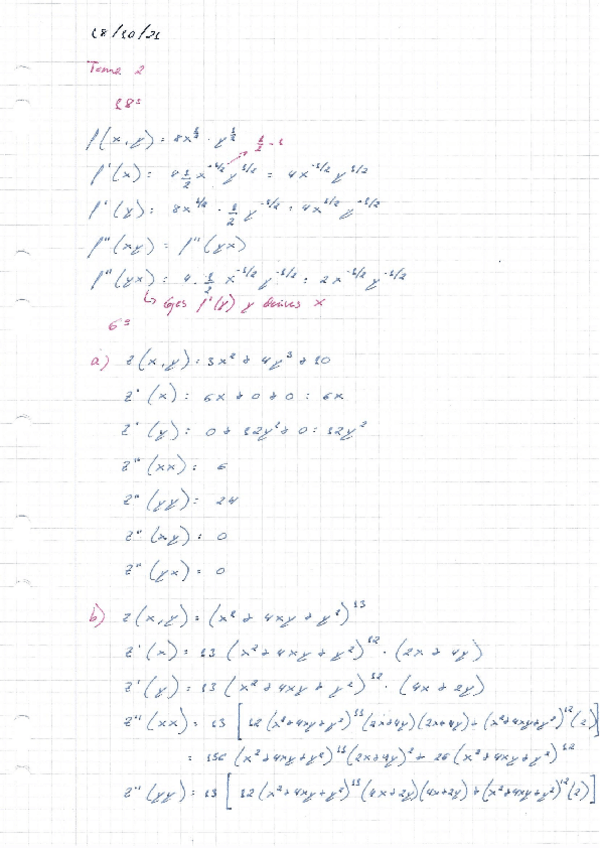 18/10/21
Tema 2
18º
f(x,y) = 8x^{1/2} · y^{1/2}
1/2 - 1
f'(x) = 8 1/2 x^{-1/2} y^{1/2} = 4x^{-1/2} y^{1/2}
f'(y) = 8x^{1/2} · 1/2 y^{-1/2} = 4x^{1/2} y^{-1/2}
f''(xy) = f''(yx)
f''(yx) = 4 · 1/2 x^{-1/2} y^{-1/2} = 2x^{-1/2} y^{-1/2}
↳ f'(y) y x
6º
a) z(x,y) = 3x² + 4y³ + 10
z'(x) = 6x + 0 + 0 = 6x
z'(y) = 0 + 12y² + 0 = 12y²
z''(xx) = 6
z''(yy) = 24
z''(xy) = 0
z''(yx) = 0
b) z(x,y) = (x² + 4xy + y²)^{13}
z'(x) = 13 (x² + 4xy + y²)^{12} · (2x + 4y)
z'(y) = 13 (x² + 4xy + y²)^{12} · (4x + 2y)
z''(xx) = 13 [12 (x²+4xy+y²)^{11} (2x+4y)(2x+4y) + (x²+4xy+y²)^{12} (2)]
= 156 (x²+4xy+y²)^{11} (2x+4y)² + 26 (x²+4xy+y²)^{12}
z''(yy) = 13 [12 (x²+4xy+y²)^{11} (4x+2y)(4x+2y) + (x²+4xy+y²)^{12} (2)]